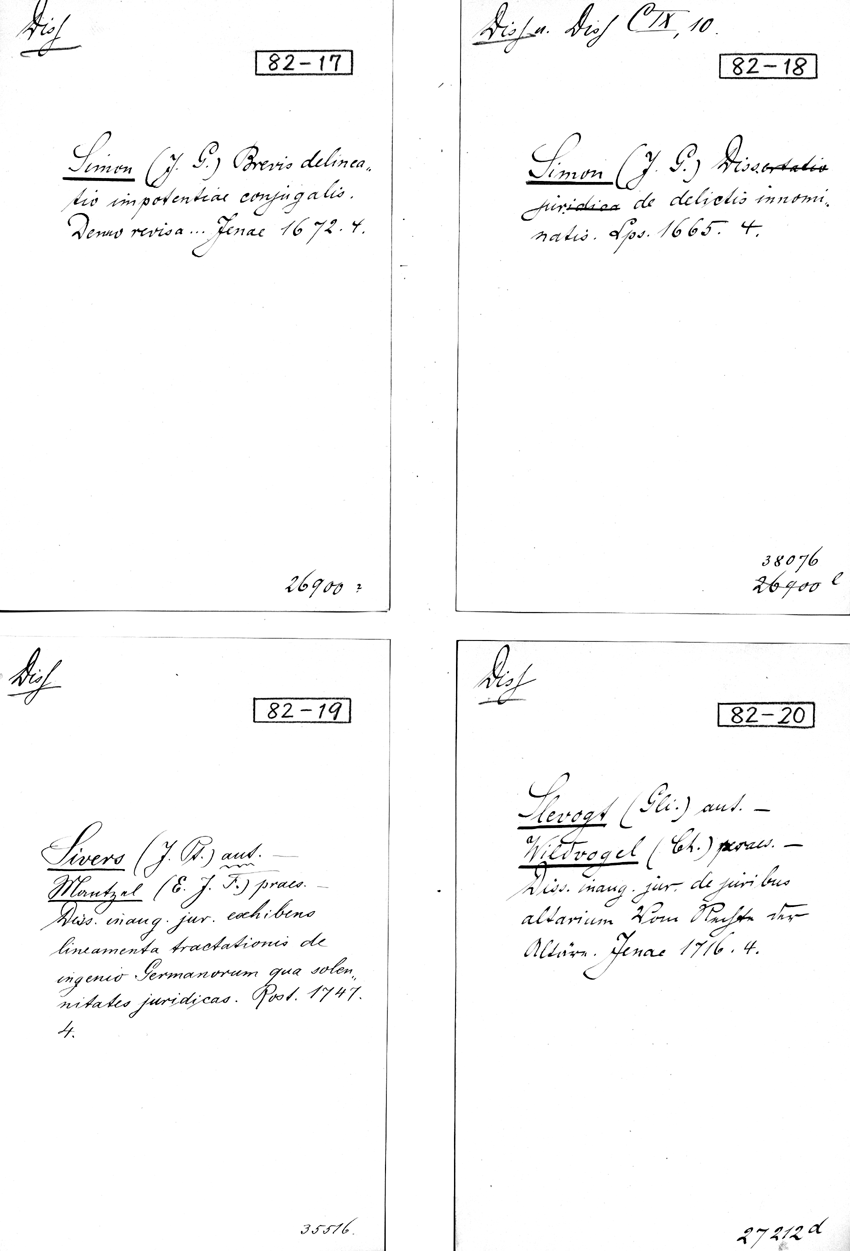 Diss
82-17
Simon (J. G.) Brevis delinea-
tio impotentiae conjugalis.
Denuo revisa... Jenae 1672. 4.
26900
Diss u. Diss C IX, 10.
82-18
Simon (J. G.) Dissertatio
juridica de delictis innomi-
natis. Lps. 1665. 4.
38076
26900 l
Diss
82-19
Sivers (J. Pt.) aut. —
Mantzel (E. J. F.) praes. —
Diss. inaug. jur. exhibens
lineamenta tractationis de
ingenio Germanorum qua solen-
nitates juridicas. Rost. 1747.
4.
35516.
Diss
82-20
Slevogt (Gli.) aut. —
Wildvogel (Ch.) praes. —
Diss. inaug. jur. de juribus
altarium Vom Rechte der
Altäre. Jenae 1716. 4.
27212d